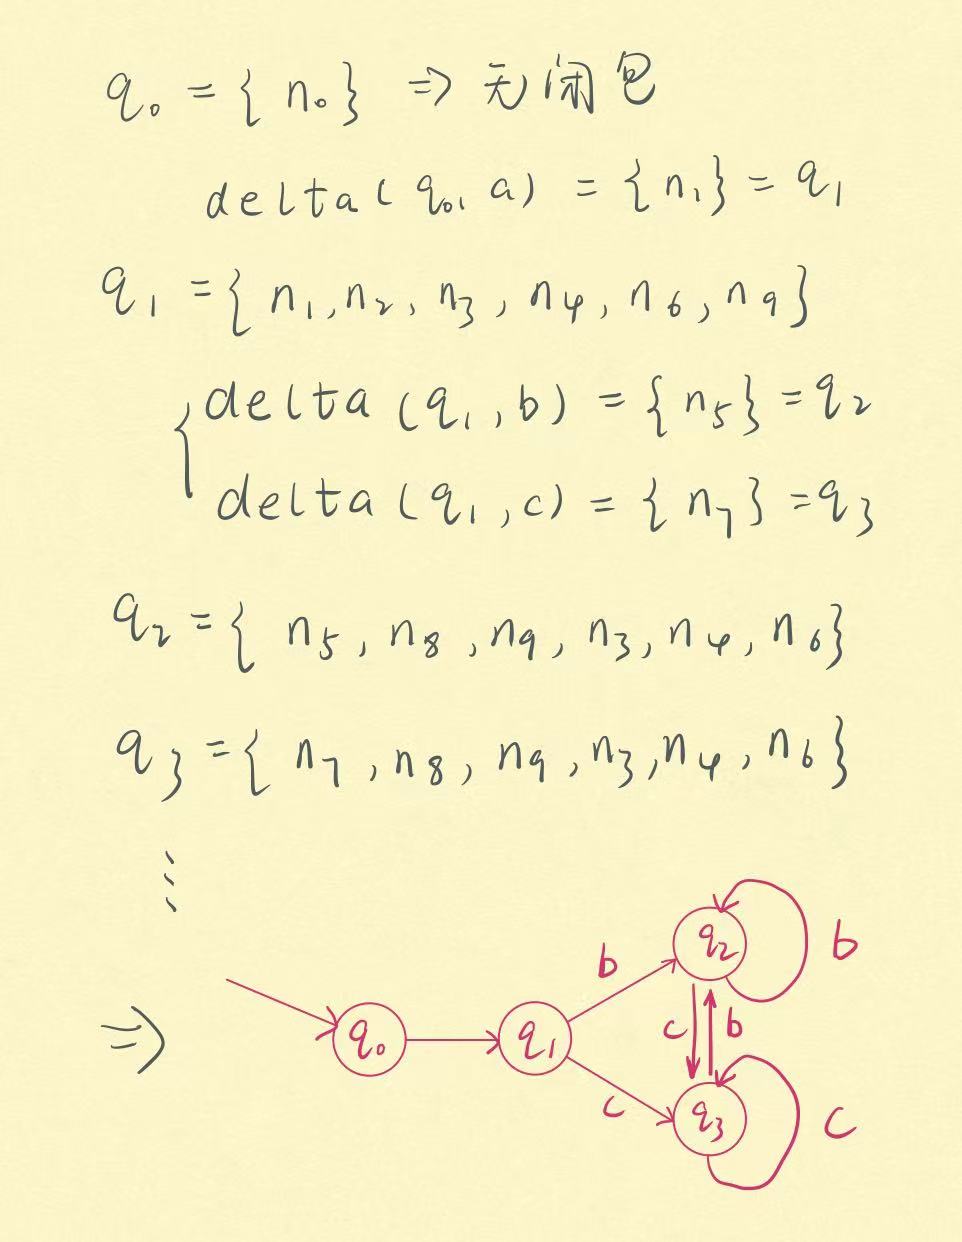 q₀ = { n₀ } ⇒ 无闭包
delta ( q₀, a ) = { n₁ } = q₁
q₁ = { n₁, n₂, n₃, n₄, n₆, n₉ }
delta ( q₁, b ) = { n₅ } = q₂
delta ( q₁, c ) = { n₇ } = q₃
q₂ = { n₅, n₈, n₉, n₃, n₄, n₆ }
q₃ = { n₇, n₈, n₉, n₃, n₄, n₆ }
⋮
q₂
b
b
⇒
q₀
q₁
c
b
c
q₃
c